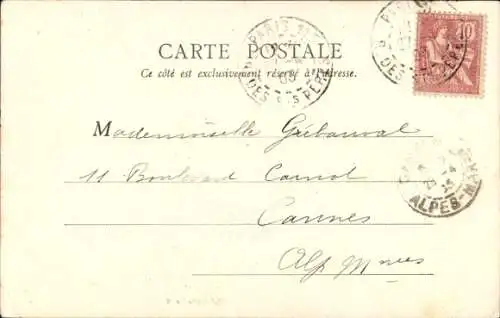 CARTE POSTALE
Ce côté est exclusivement réservé à l'adresse.
PARIS
DES
PARIS
DES
10
Mademoiselle Grébauval
11 Boulevard Carnot
Cannes
Alp Mmes
ALPES